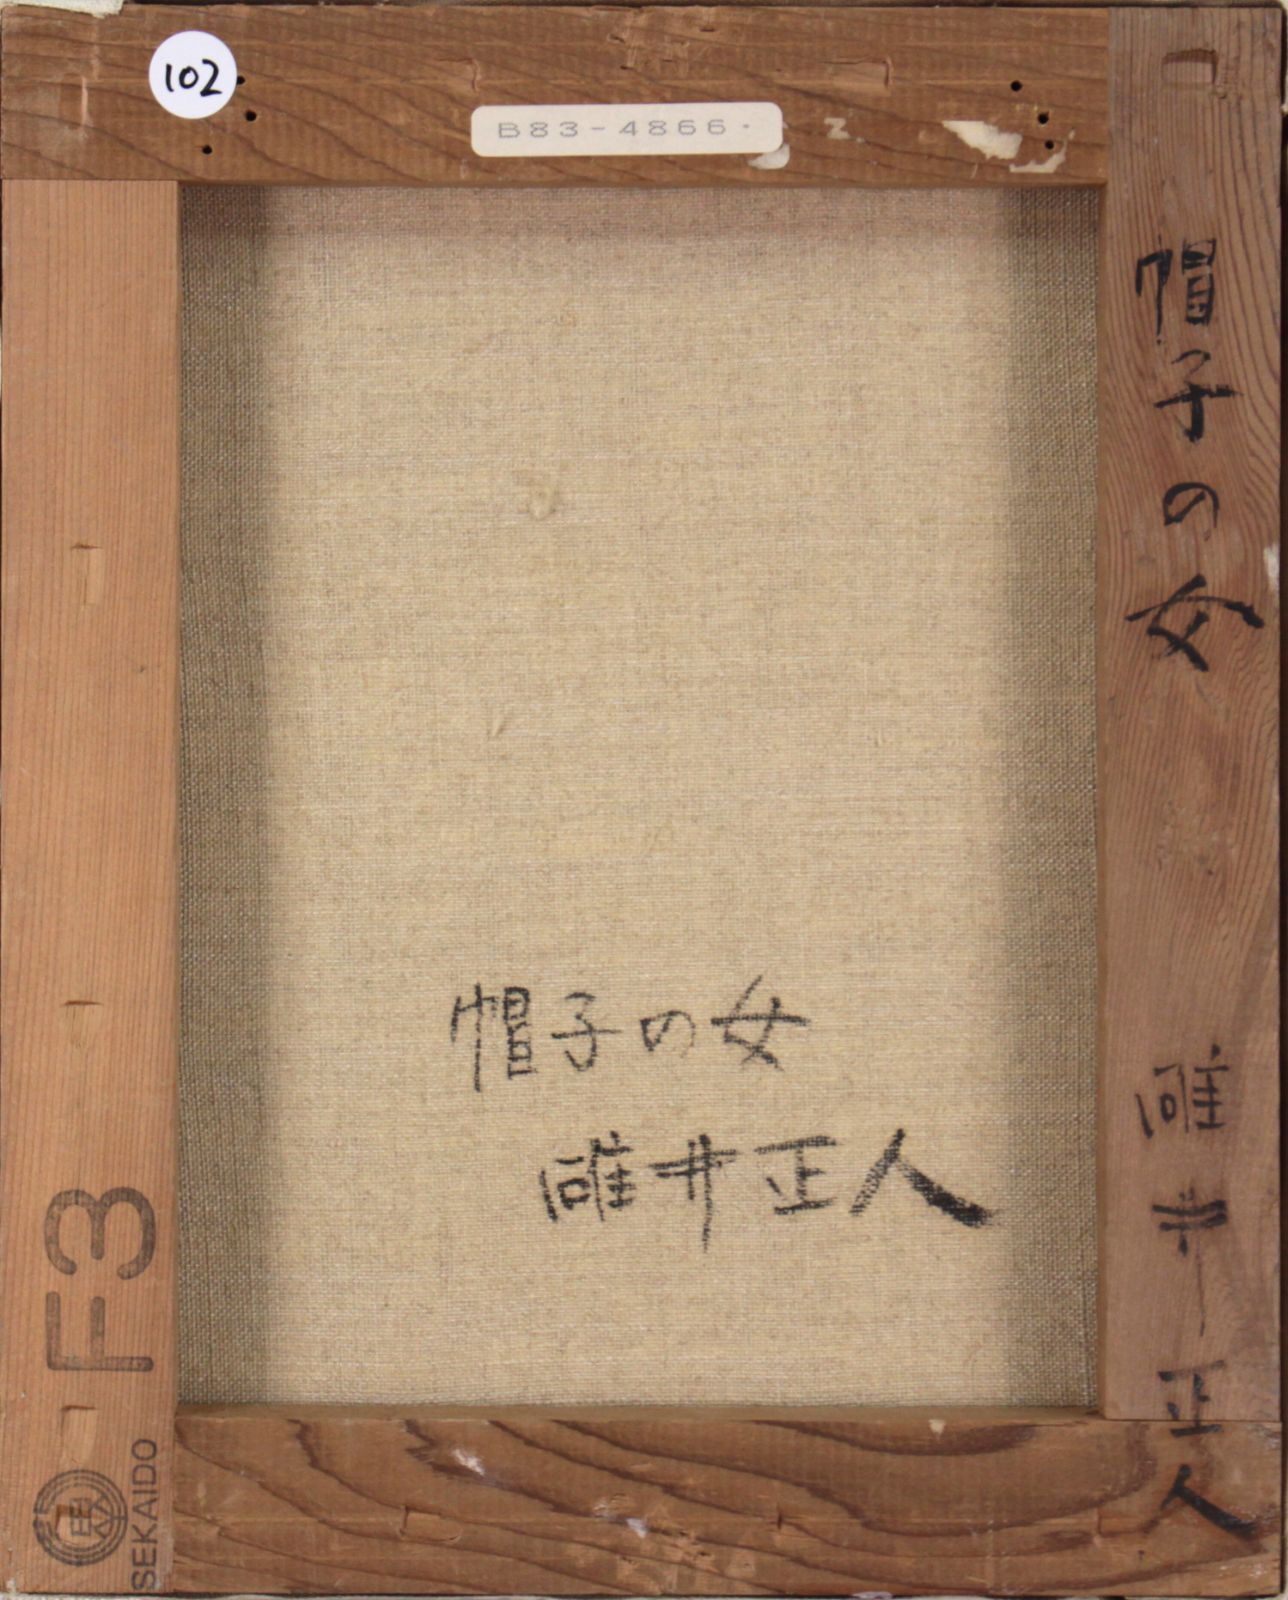 102
B83-4866.
帽子の女
碓井正人
帽子の女
碓井正人
F3
SEKAIDO